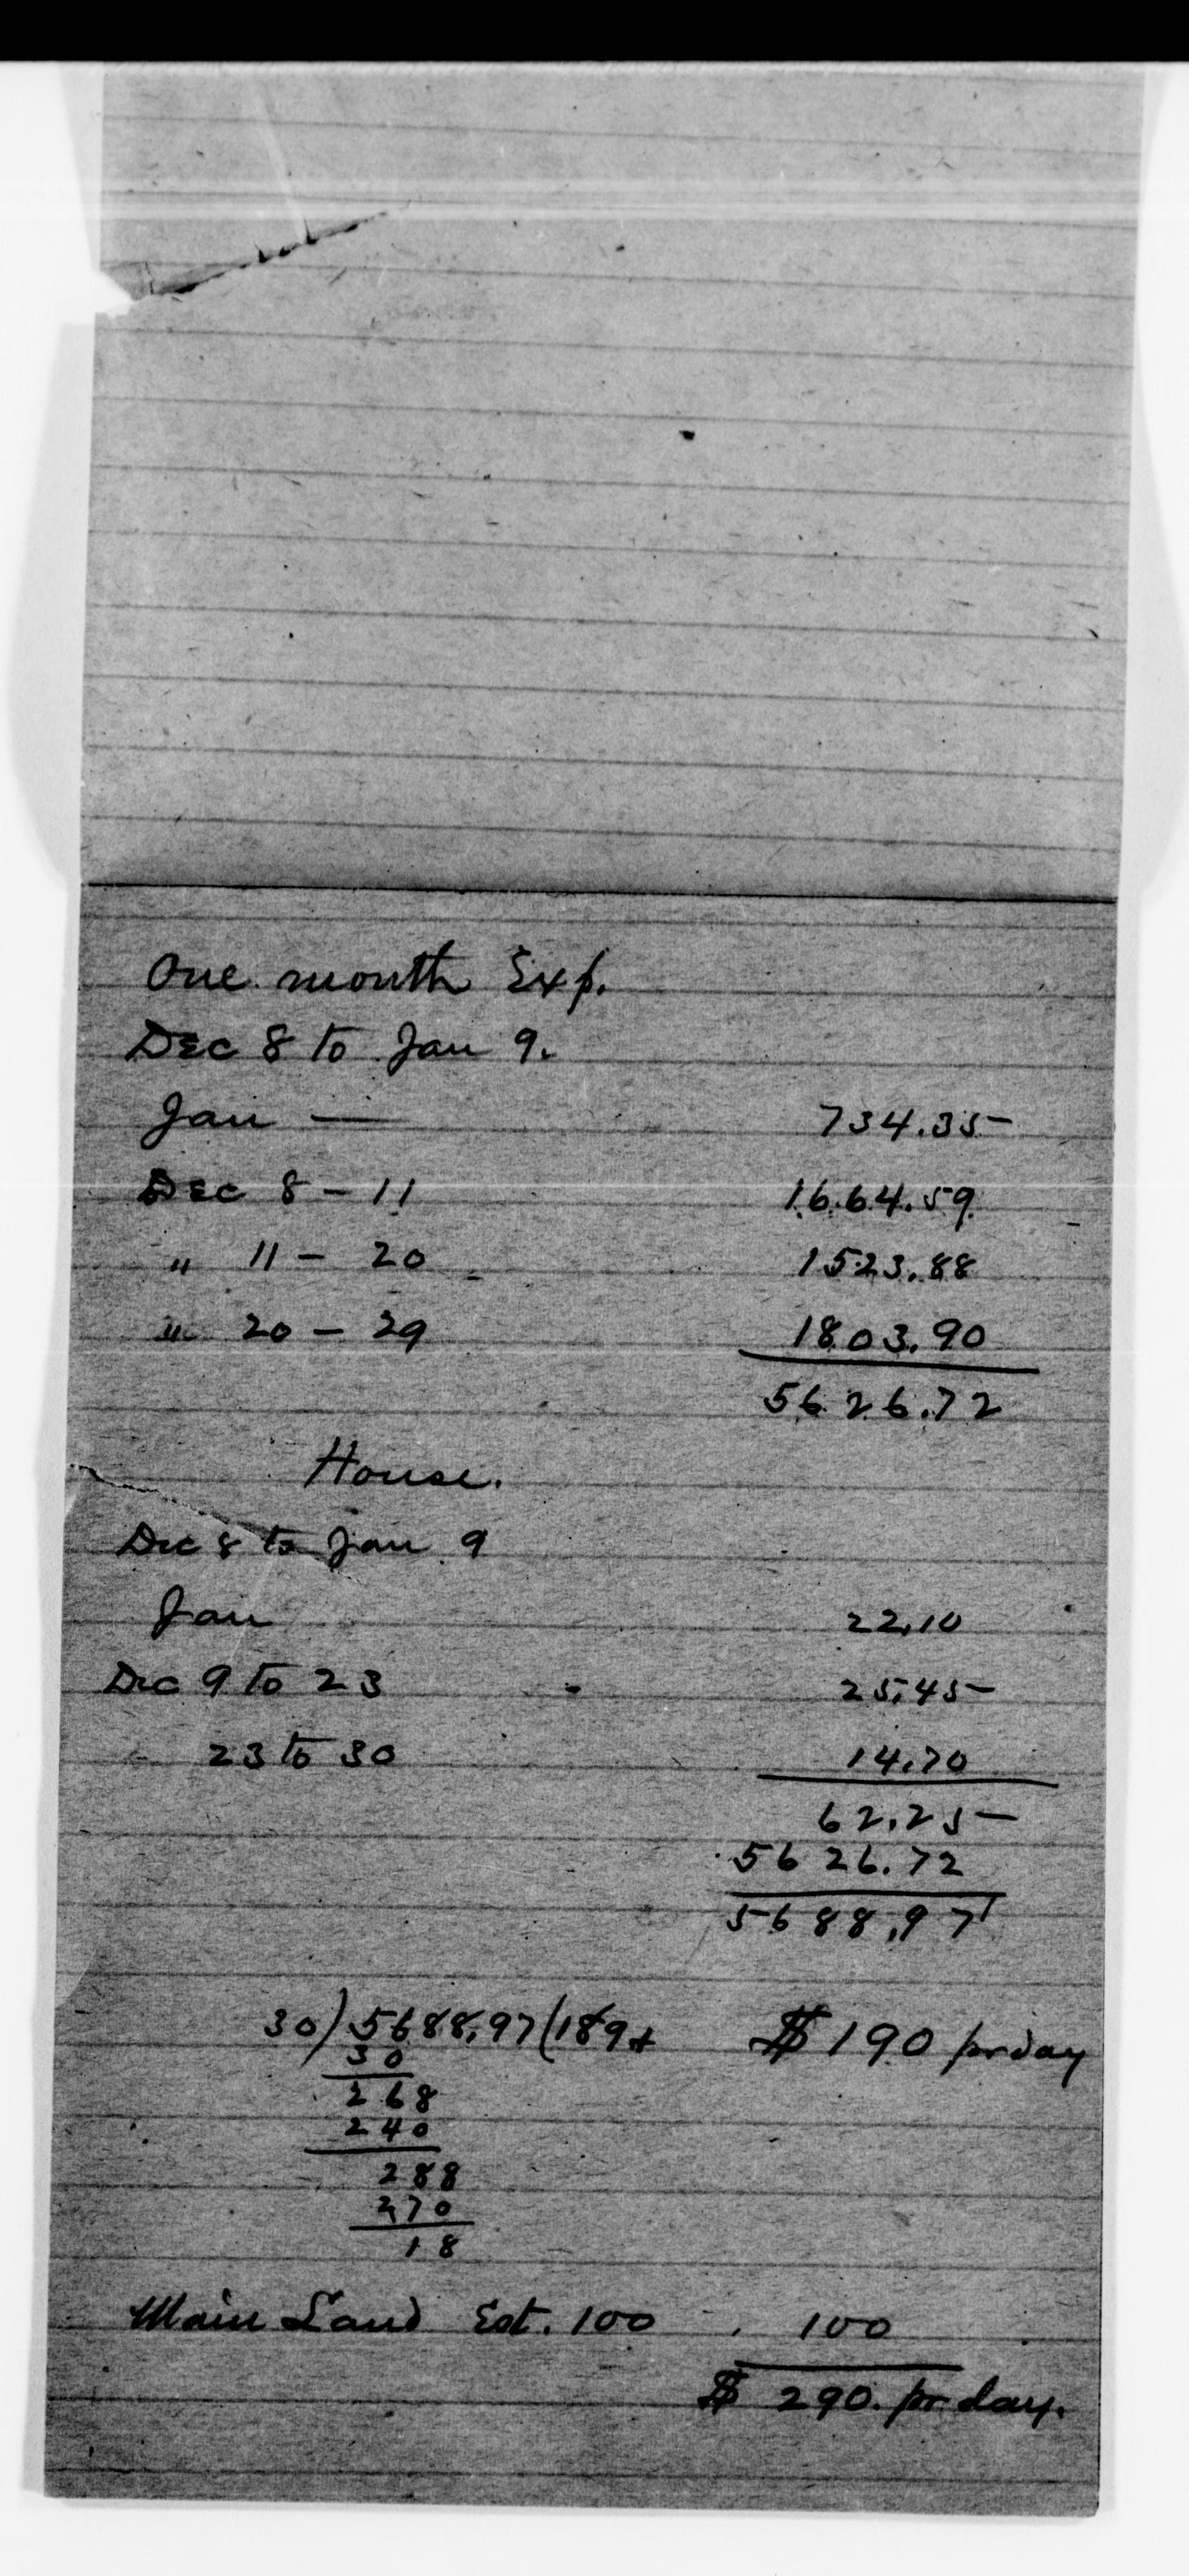 One month Exp.
Dec 8 to Jan 9.
Jan — 734.35
Dec 8 - 11 1664.59
" 11 - 20 1523.88
" 20 - 29 1803.90
5626.72
House.
Dec 8 to Jan 9
Jan 22.10
Dec 9 to 23 25.45
23 to 30 14.70
62.25
5626.72
5688.97
30)5688.97(189+ $190 pr day
30
268
240
288
270
18
Main Land Est. 100 100
$ 290. pr day.